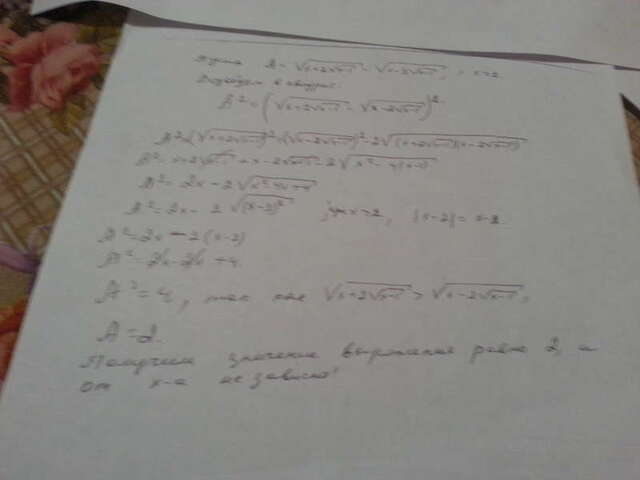 Пусть A = √(x+2√(x-1)) - √(x-2√(x-1)), x>2
Возведём в квадрат:
A² = (√(x+2√(x-1)) - √(x-2√(x-1)))²
A² = (√(x+2√(x-1)))² + (√(x-2√(x-1)))² - 2√((x+2√(x-1))(x-2√(x-1)))
A² = x+2√(x-1) + x-2√(x-1) - 2√(x²-4(x-1))
A² = 2x - 2√(x²-4x+4)
A² = 2x - 2√((x-2)²), x>2, |x-2| = x-2
A² = 2x - 2(x-2)
A² = 2x - 2x + 4
A² = 4, так как √(x+2√(x-1)) > √(x-2√(x-1)),
A = 2.
Получим значение выражения равно 2, и
от x-а не зависит